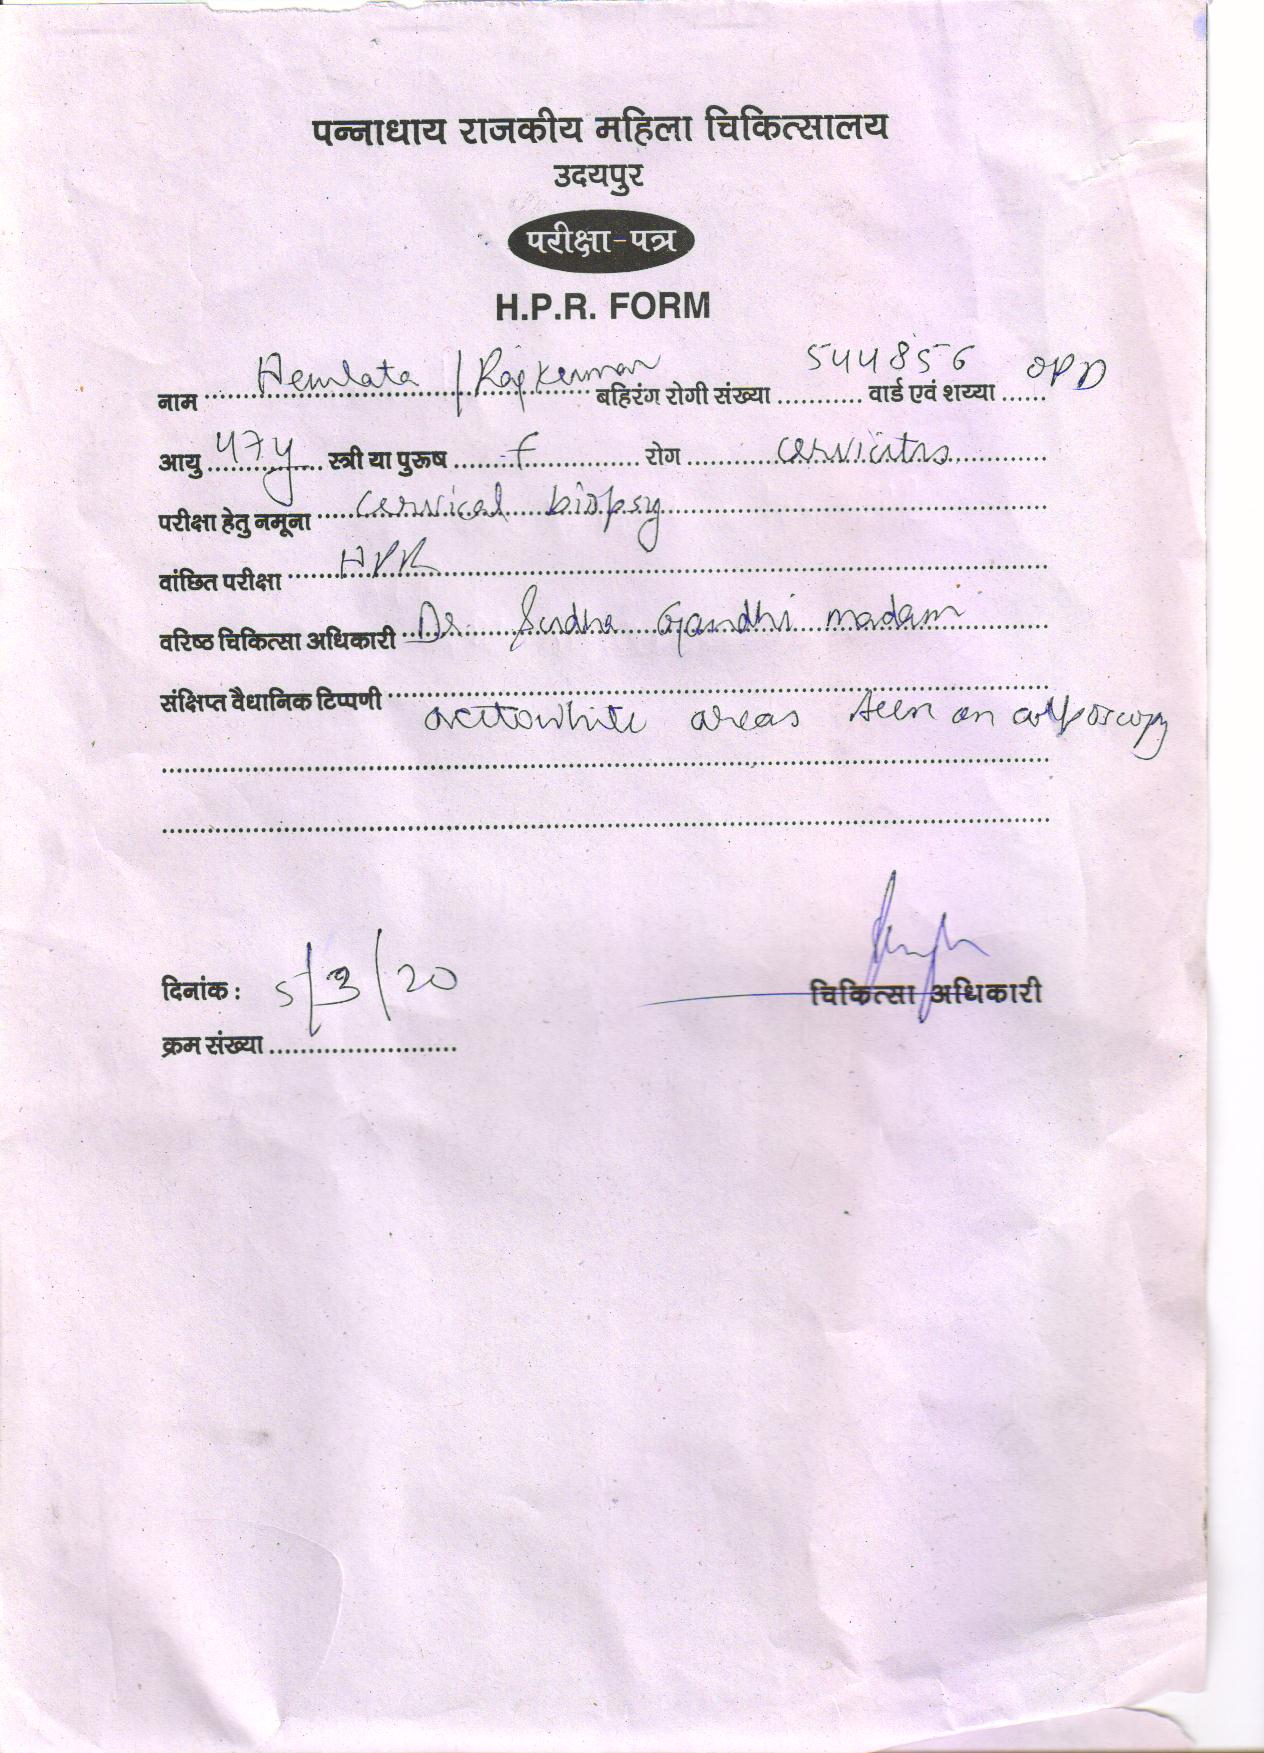 पन्नाधाय राजकीय महिला चिकित्सालय
उदयपुर
परीक्षा-पत्र
H.P.R. FORM
नाम Hemlata / Rajkumar बहिरंग रोगी संख्या 544856 वार्ड एवं शय्या OPD
आयु 47y स्त्री या पुरूष F रोग cervicitis
परीक्षा हेतु नमूना cervical biopsy
वांछित परीक्षा HPR
वरिष्ठ चिकित्सा अधिकारी Dr. Sudha Gandhi madam
संक्षिप्त वैधानिक टिप्पणी
acetowhite areas seen on colposcopy
दिनांक : 5/3/20
चिकित्सा अधिकारी
क्रम संख्या